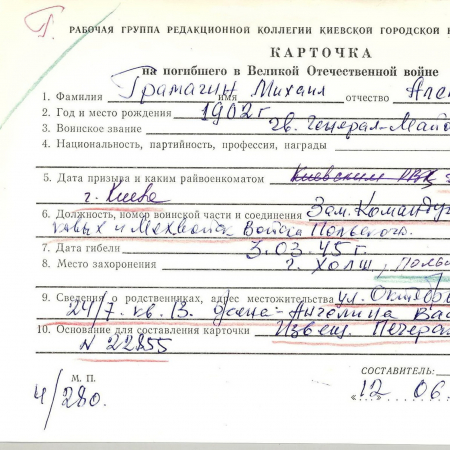 Г.
РАБОЧАЯ ГРУППА РЕДАКЦИОННОЙ КОЛЛЕГИИ КИЕВСКОЙ ГОРОДСКОЙ
КАРТОЧКА
на погибшего в Великой Отечественной войне
1. Фамилия Грамагин имя Михаил отчество Алек
2. Год и место рождения 1902 г
3. Воинское звание гв. Генерал-Майо
4. Национальность, партийность, профессия, награды
5. Дата призыва и каким райвоенкоматом Киевским РВК
г. Киева
6. Должность, номер воинской части и соединения Зам. Команду
и Мехвойск Войска Польского.
7. Дата гибели 3.03.45 г.
8. Место захоронения г. Холш, Поль
9. Сведения о родственниках, адрес местожительства ул. Октябр
24/7. кв. 13. Жена - Ангелина Вас
10. Основание для составления карточки Извещ. Печера
N 22855
М. П.
СОСТАВИТЕЛЬ:
4/280.
12 06